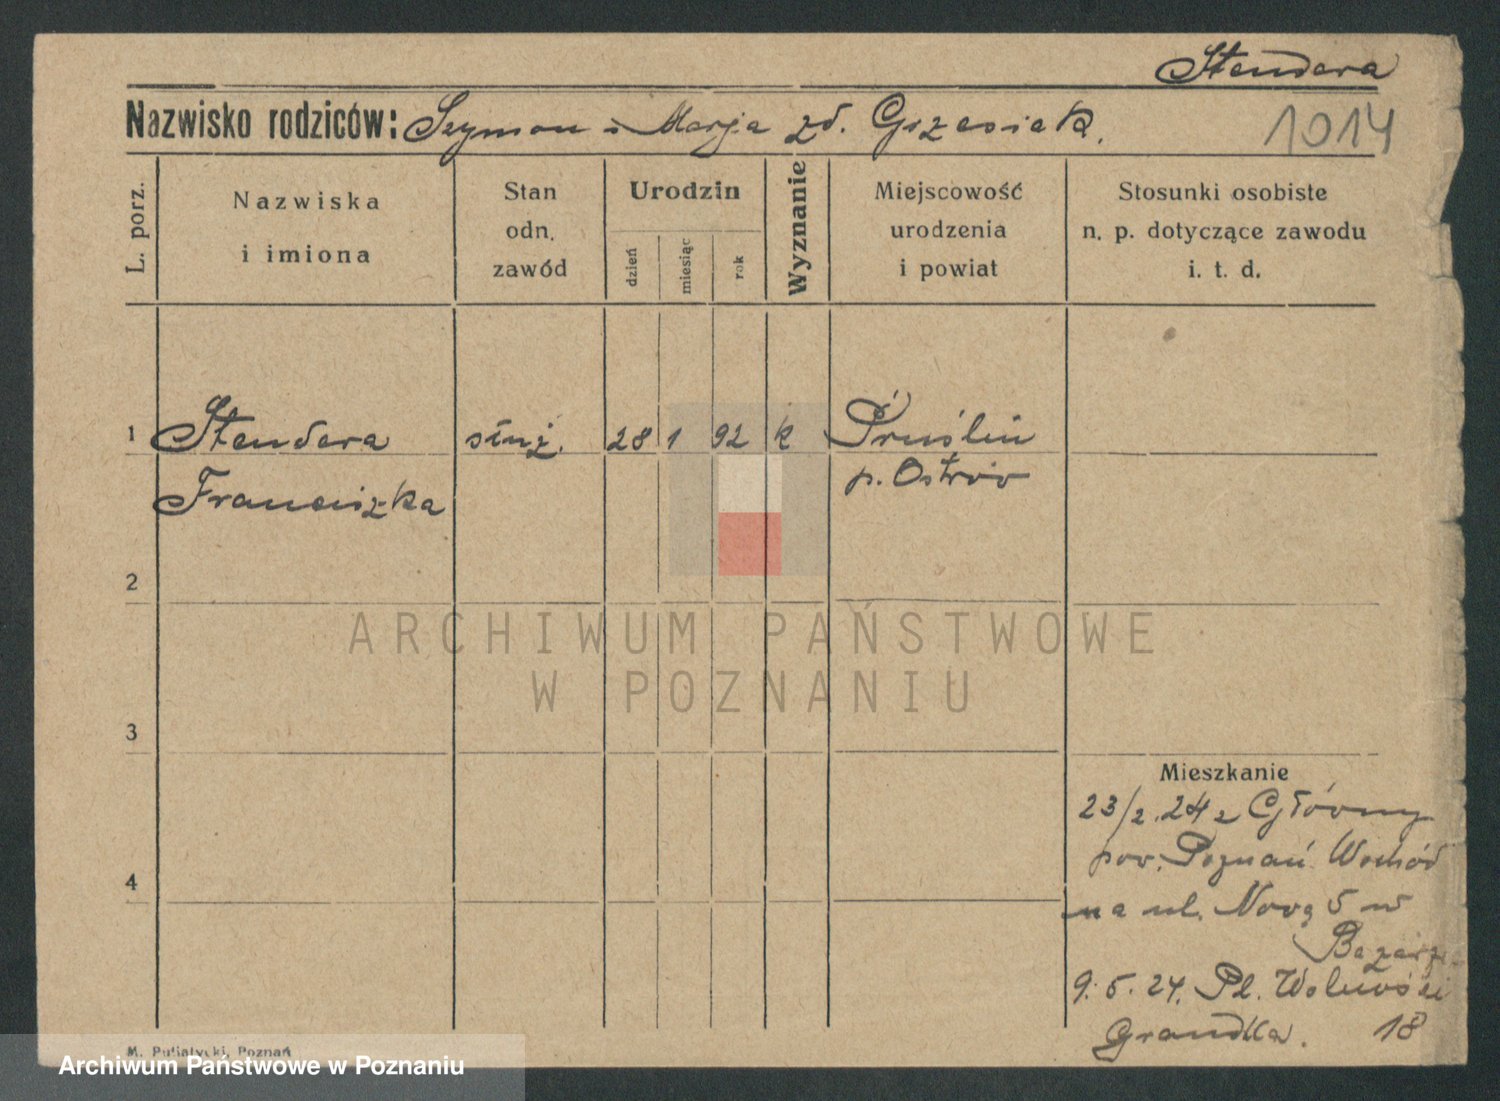 Stendera
Nazwisko rodziców: Szymon i Marja zd. Grzesiak.
1014
L. porz.
Nazwiska
i imiona
Stan
odn.
zawód
Urodzin
dzień
miesiąc
rok
Wyznanie
Miejscowość
urodzenia
i powiat
Stosunki osobiste
n. p. dotyczące zawodu
i. t. d.
1 Stendera służ. 28 1 92 k Pruślin
Franciszka p. Ostrów
2
ARCHIWUM PAŃSTWOWE
W POZNANIU
3
Mieszkanie
23/2.24 z Główny
pow. Poznań Wschód
4
na ul. Nową 5 w
Bazarze
9.5.24. Pl. Wolności
18
M. Putiatycki, Poznań
Archiwum Państwowe w Poznaniu